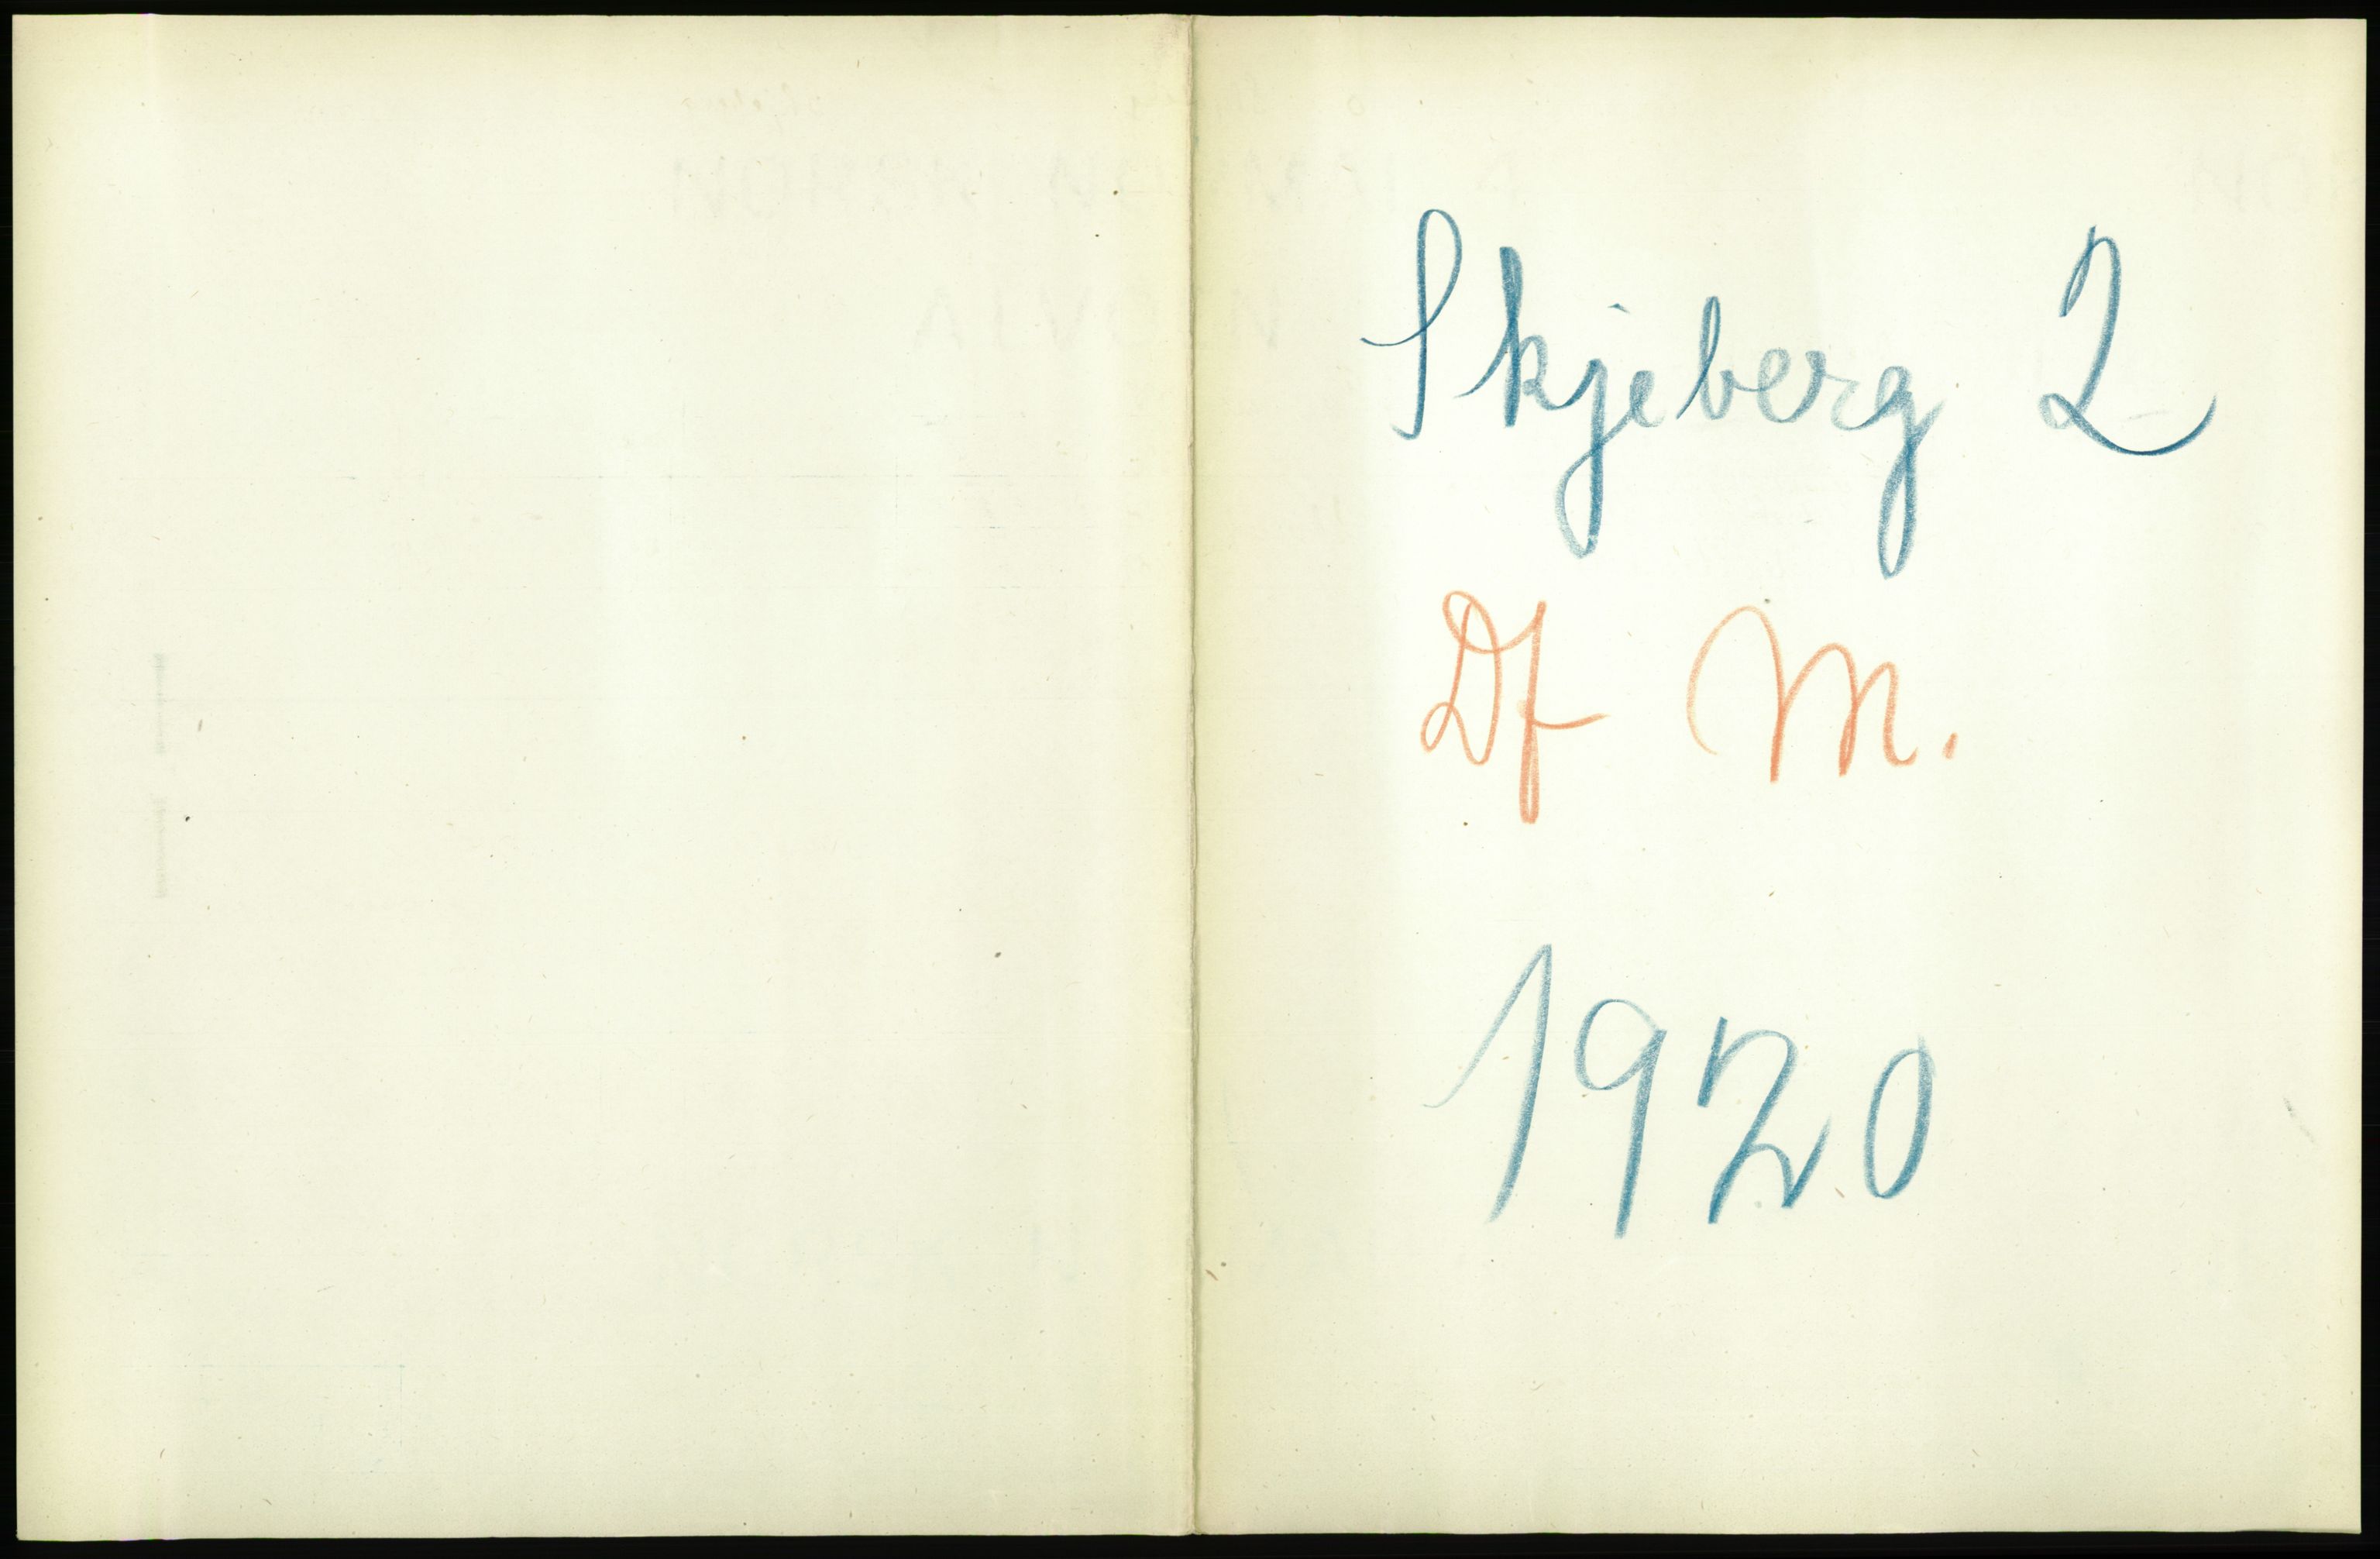 Skjeberg 2
Df M.
1920